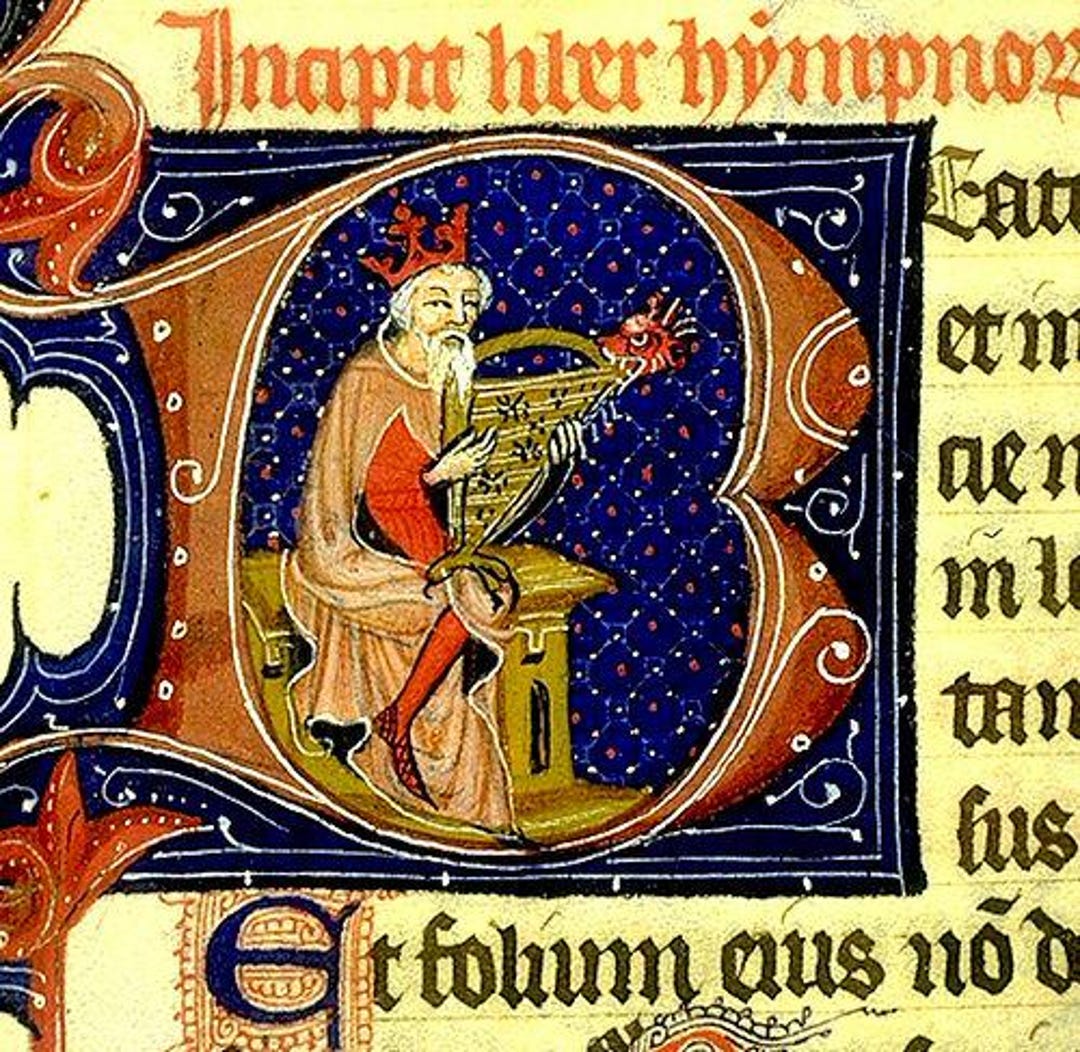 Incipit liber hympnor
Eatu
et in
cie n
in le
tan
sus
Et folium eius nō de